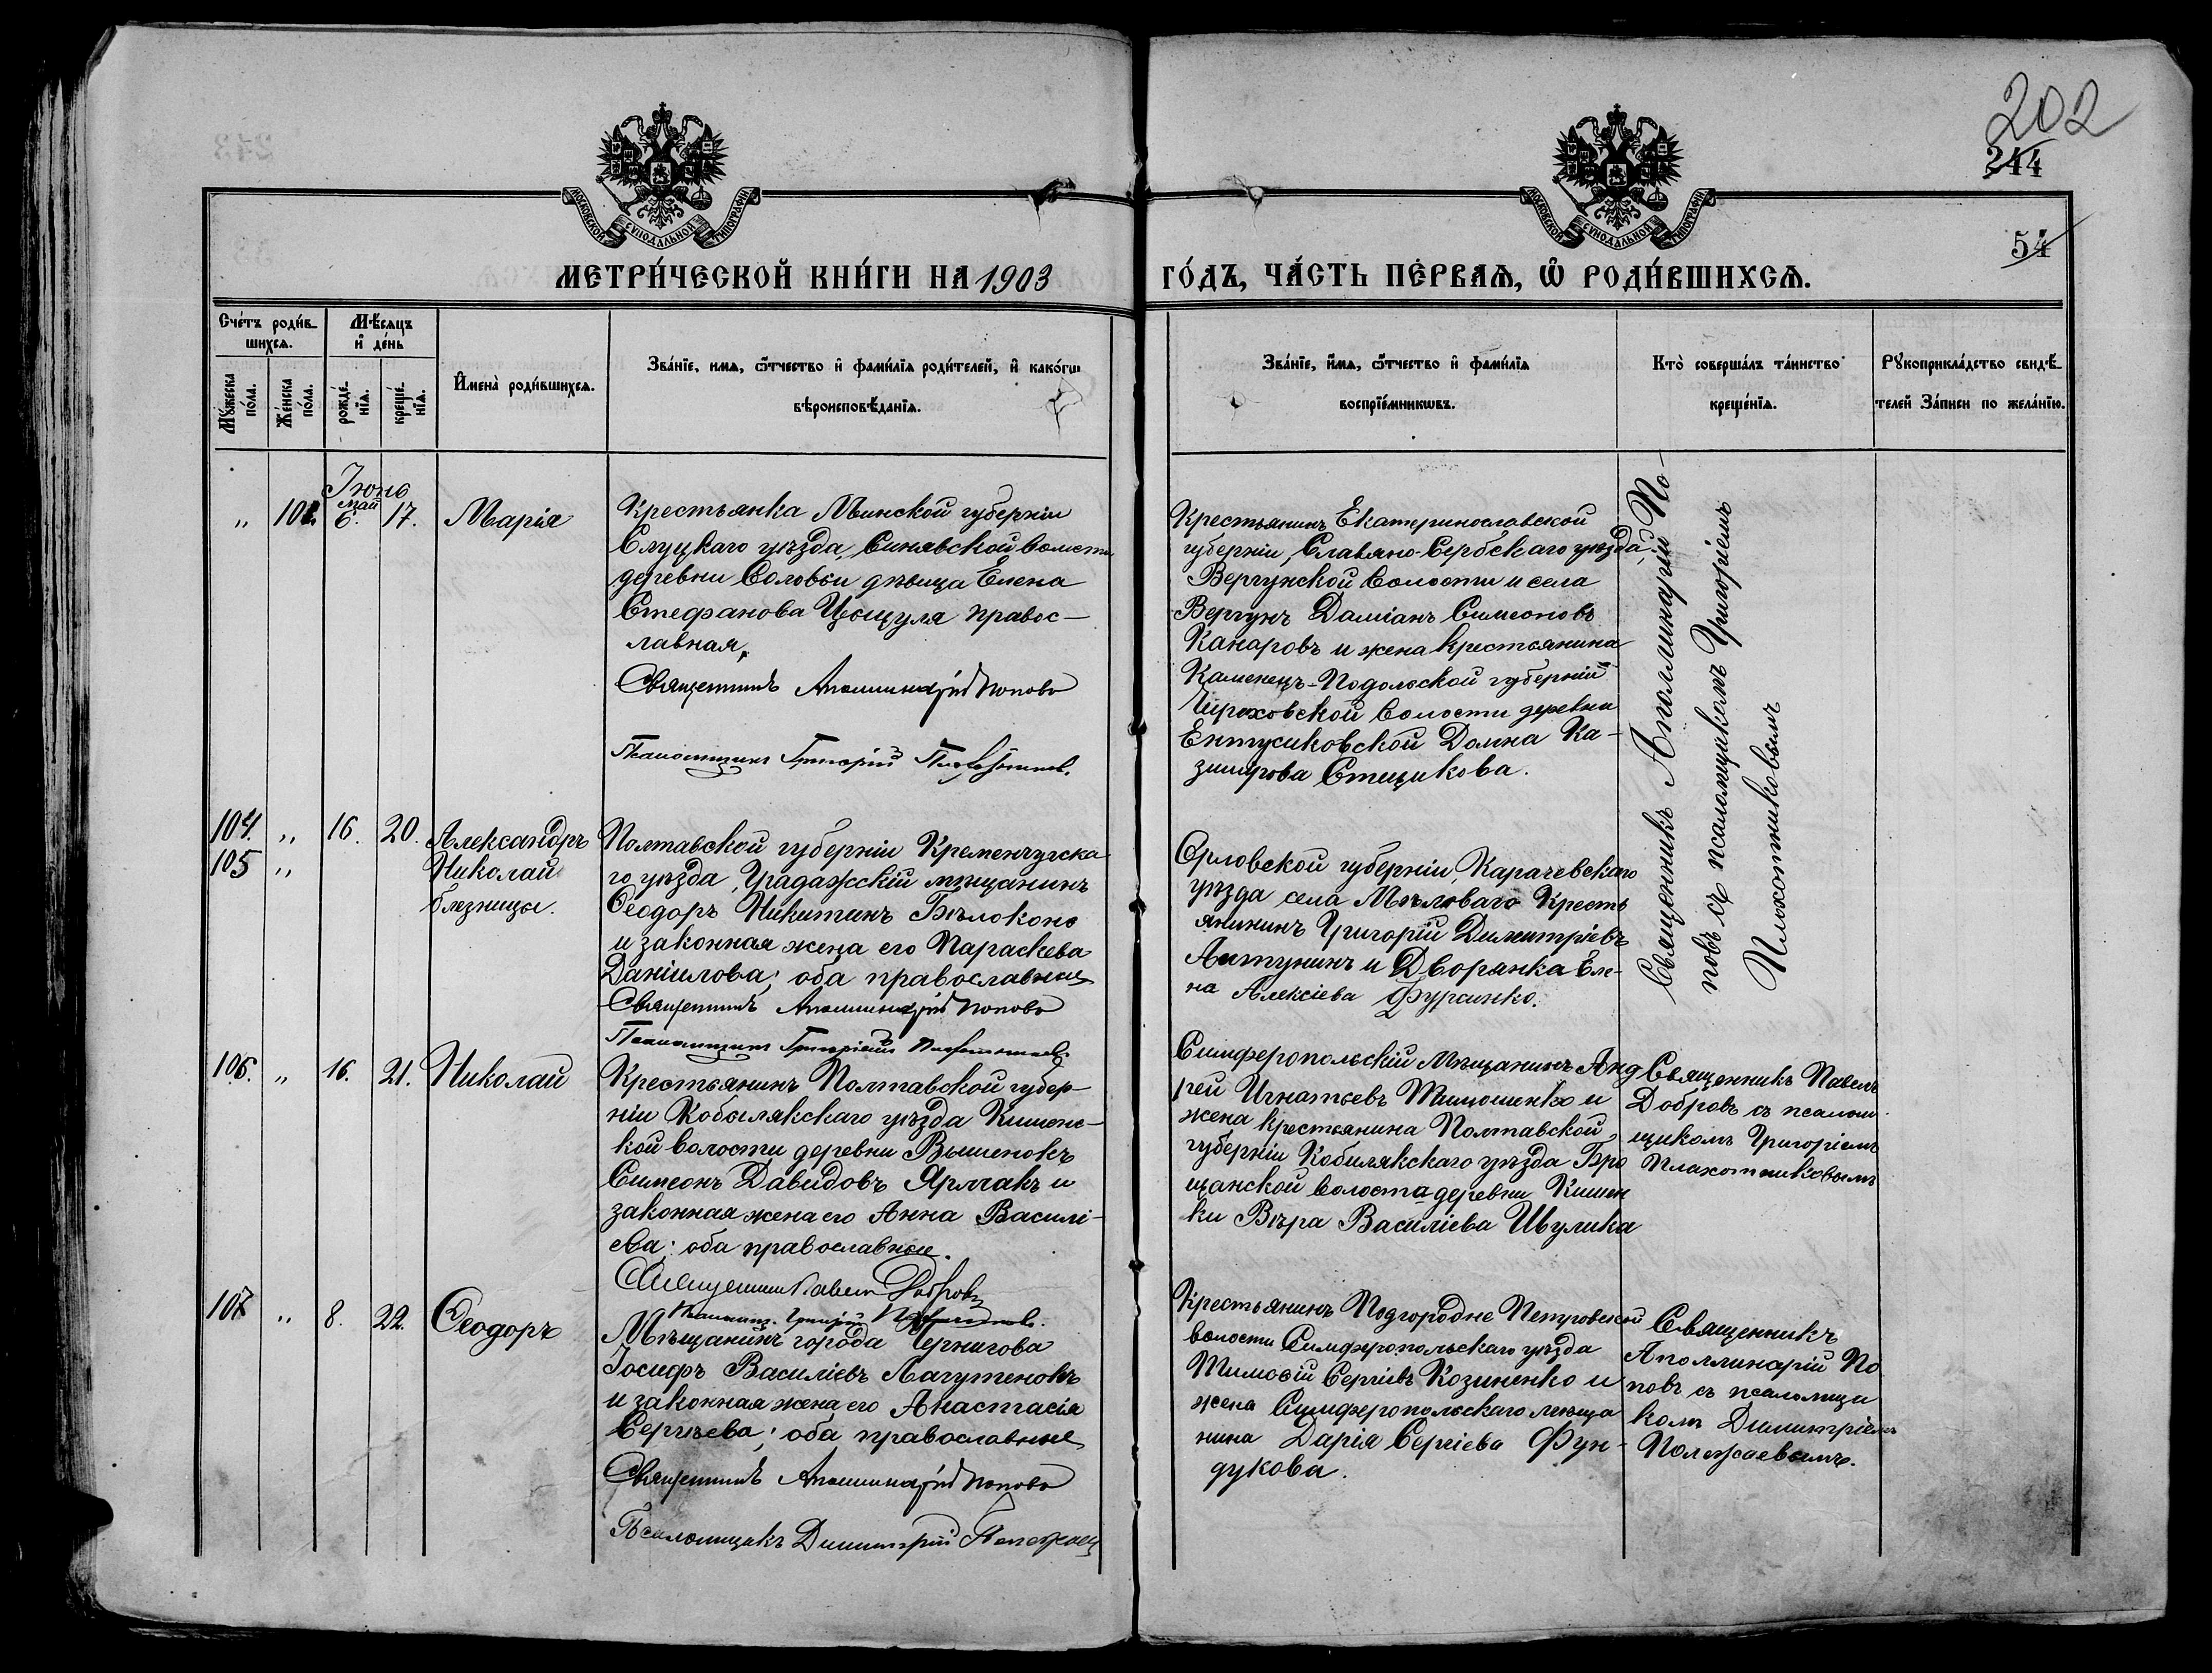 202
244
54
МОСКОВСКОЙ СѴНОДАЛЬНОЙ ТИПОГРАФІИ
МОСКОВСКОЙ СѴНОДАЛЬНОЙ ТИПОГРАФІИ
МЕТРИ́ЧЕСКОЙ КНИ́ГИ НА 1903
ГО́ДЪ, ЧА́СТЬ ПЕ́РВАѦ, Ѽ РОДИ́ВШИХСѦ.
Сче́тъ роди́в-
шихсѧ.
Мѣ́сѧцъ
и҆ де́нь
Мꙋ́жеска
по́ла.
Же́нска
по́ла.
рожде́-
нїѧ.
креще́-
нїѧ.
И҆мена̀ роди́вшихсѧ.
Зва́нїе, имѧ, ѻ҆́тчество и҆ фами́лїѧ роди́телей, и҆ како́гѡ
вѣроисповѣ́данїѧ.
Зва́нїе, и҆́мѧ, ѻ҆́тчество и҆ фами́лїѧ
воспрїе́мникѡвъ.
Кто̀ соверша́лъ та́инство
креще́нїѧ.
Рꙋкоприкла́дство свидѣ́-
телей За́писи по жела́нїю.
Іюнь
май
„ 102. 6. 17. Марія
Крестьянка Минской губерніи
Слуцкаго уѣзда, Синявской волости
деревни Соловьи дѣвица Елена
Стефанова Цющуля правос-
лавная,
Священникъ Аполлинарій Поповъ
Псаломщикъ Григорій
Крестьянинъ Екатеринославской
губерніи, Славяно-Сербскаго уѣзда,
Вергунской волости и села
Вергунъ Даміанъ Симеоновъ
Канаровъ и жена крестьянина
Каменецъ-Подольской губерніи
волости деревни
Ентусиковской Домна Ка-
зимірова Стецикова.
Священникъ Аполлинарій По-
повъ съ псаломщикомъ Григоріемъ
Плохотниковымъ
104. „ 16. 20. Александръ
105 „ Николай
близнецы.
Полтавской губерніи Кременчугска
го уѣзда, Градажсскій мѣщанинъ
Ѳеодоръ Никитинъ Бѣлоконь
и законная жена его Параскева
Даніилова; оба православные
Священникъ Аполлинарій Поповъ
Псаломщикъ Григорій
Орловской губерніи, Карачевскаго
уѣзда села Мѣловаго Кресть
янинъ Григорій Димитріевъ
Антунинъ и Дворянка Еле-
на Алексіева Фурсенко.
106. „ 16. 21. Николай
Крестьянинъ Полтавской губер-
ніи Кобылякскаго уѣзда Кишенс-
кой волости деревни Вышенокъ
Симеонъ Давидовъ Ярмакъ и
законная жена его Анна Василі-
ева; оба православные.
Священникъ Павелъ Добровъ
Псаломщ. Григорій
Симферопольскій Мѣщанинъ Анд
рей Игнатьевъ Тимошенко и
жена крестьянина Полтавской
губерніи Кобилякскаго уѣзда Бро
щанской волости деревни Кишен
ки Вѣра Василіева Шулика
Священникъ Павелъ
Добровъ съ псалом
щикомъ Григоріемъ
Плахотниковымъ
107 „ 8. 22. Ѳеодоръ
Мѣщанинъ города Чернигова
Іосифъ Василіевъ Лагутенокъ
и законная жена его Анастасія
Сергѣева; оба православные
Священникъ Аполлинарій Поповъ
Псаломщикъ Димитрій Полежаевъ
Крестьянинъ Подгородне Петровской
волости Симферопольскаго уѣзда
Тимоѳій Сергіевъ Козиненко и
жена Симферопольскаго мѣща
нина Дарія Сергіева Фун-
дукова.
Священникъ
Аполлинарій По
повъ съ псаломщи
комъ Димитріемъ
Полежаевымъ.